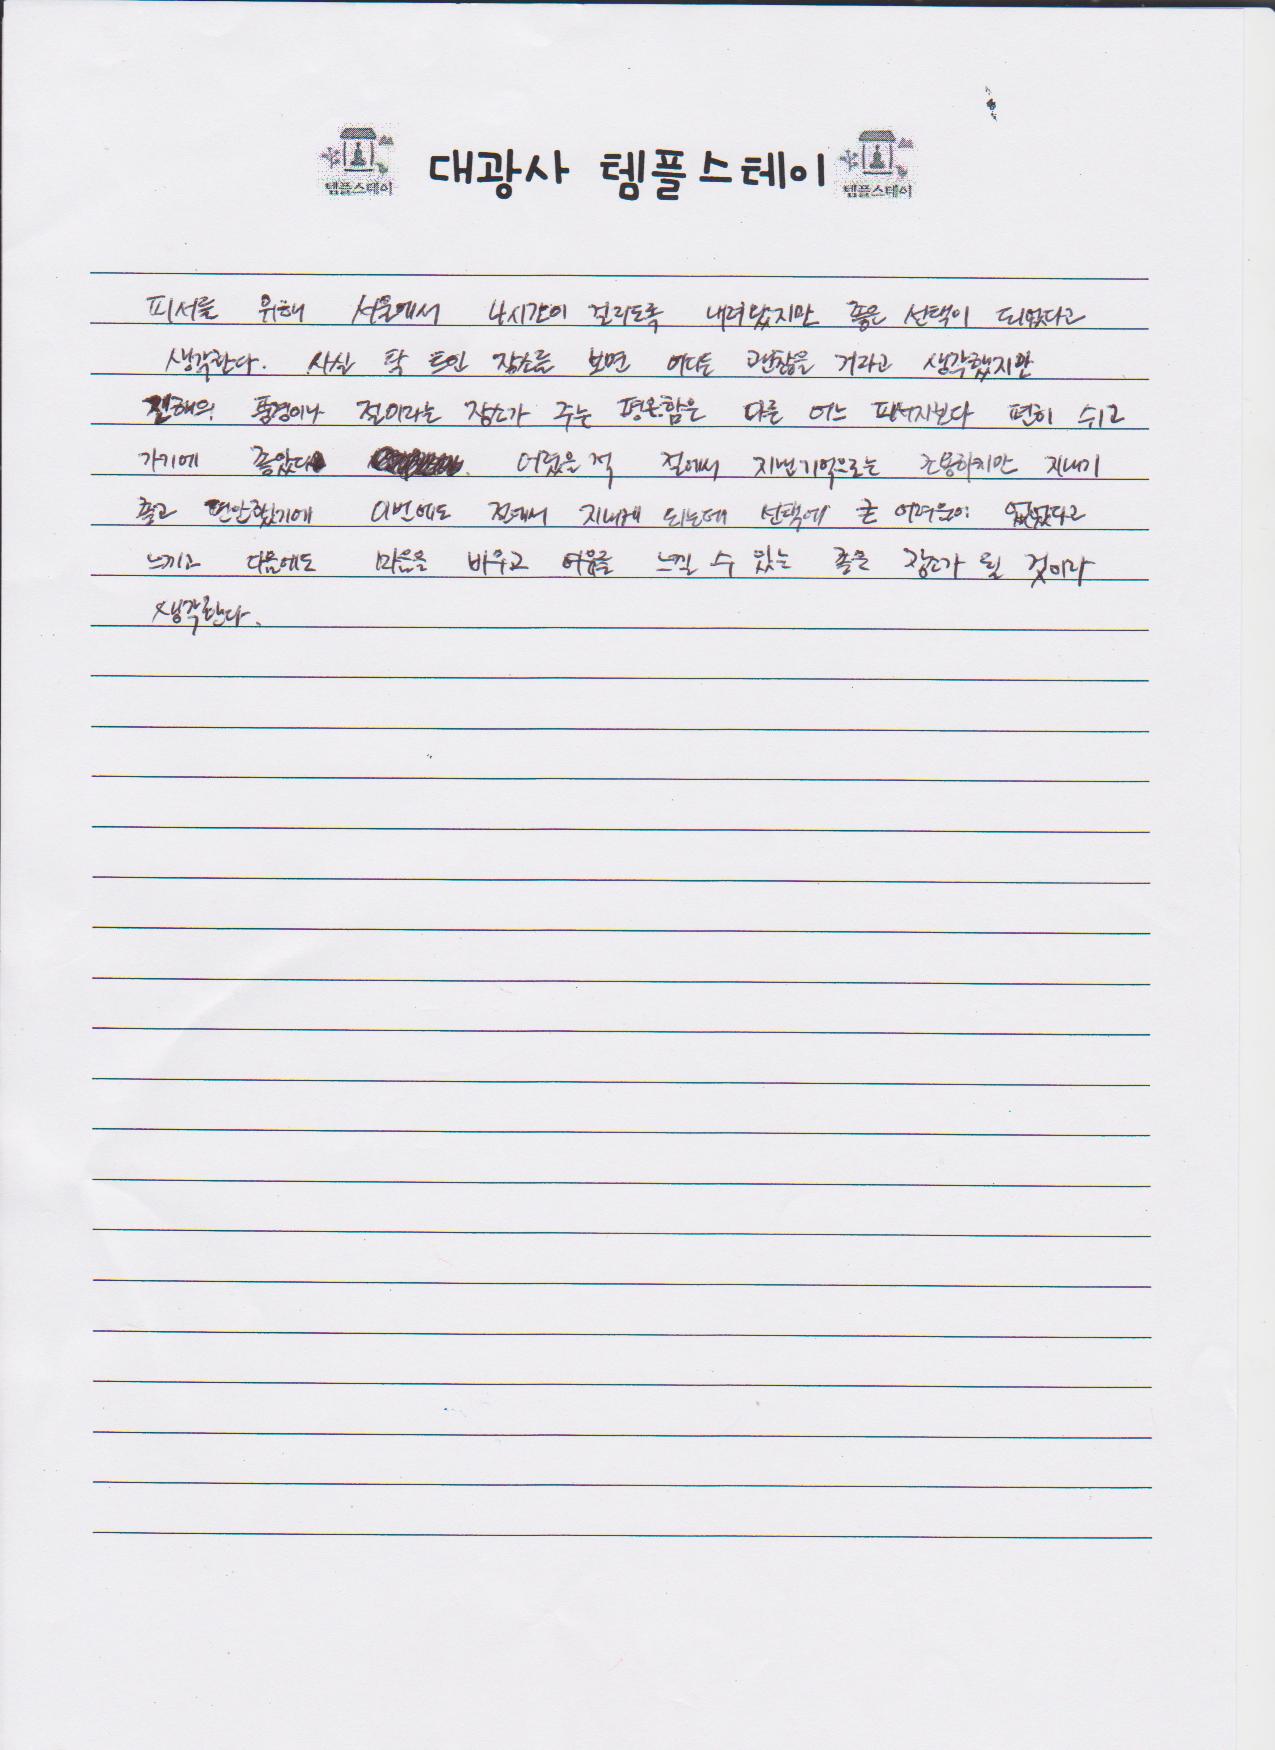 템플스테이 대광사 템플스테이 템플스테이
피서를 위해 서울에서 4시간이 걸리도록 내려왔지만 좋은 선택이 되었다고
생각한다. 사실 탁 트인 장소를 보면 어디든 괜찮을 거라고 생각했지만
진해의 풍경이나 절이라는 장소가 주는 평온함은 다른 어느 피서지보다 편히 쉬고
가기에 좋았다. 어렸을 적 절에서 지낸 기억으로는 조용하지만 지내기
좋고 편안했기에 이번에도 절에서 지내게 되는데 선택에 큰 어려움이 없었다고
느끼고 다음에도 마음을 비우고 여유를 느낄 수 있는 좋은 장소가 될 것이라
생각한다.